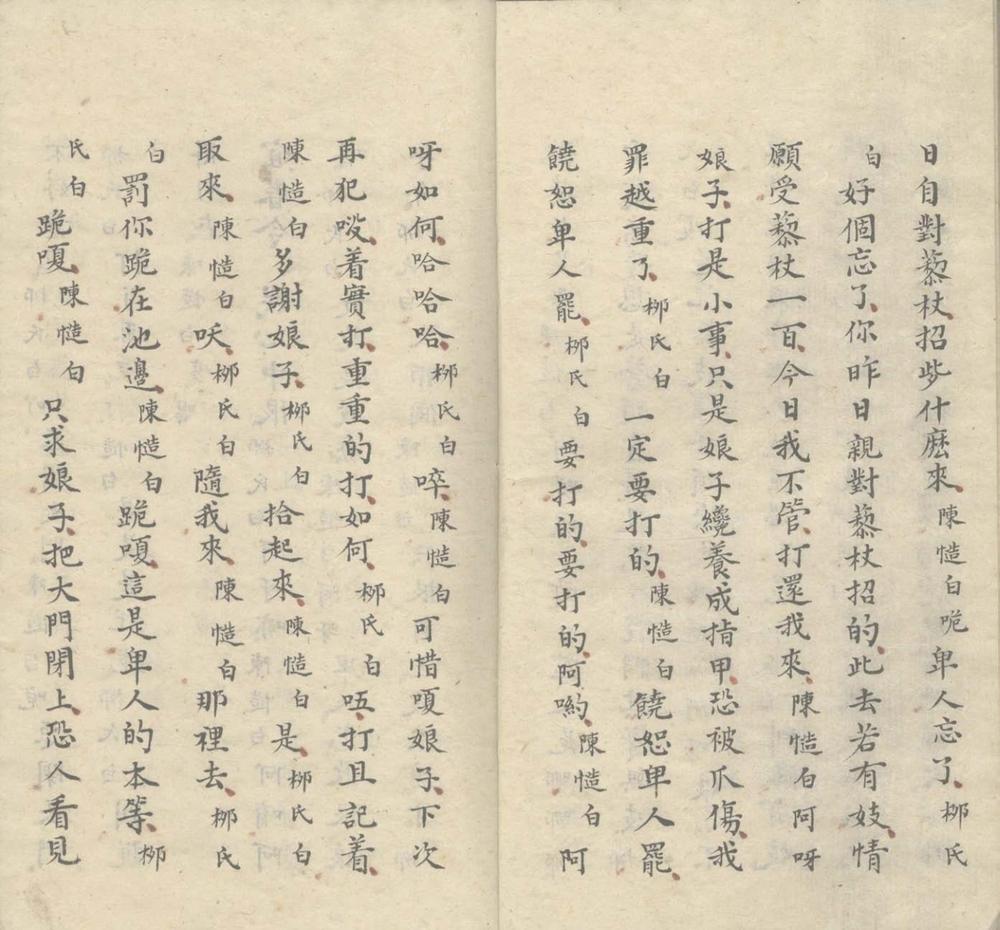 日自對藜杖招些什麽來陳慥白咾卑人忘了柳氏
白好個忘了你昨日親對藜杖招的此去若有妓情
願受藜杖一百今日我不管打還我來陳慥白阿呀
娘子打是小事只是娘子纔養成指甲恐被爪傷我
罪越重了柳氏白一定要打的陳慥白饒恕卑人罷
饒恕卑人罷柳氏白要打的要打的阿喲陳慥白阿
呀如何哈哈哈柳氏白啐陳慥白可惜嗄娘子下次
再犯㕸着實打重重的打如何柳氏白㕶打且記着
陳慥白多謝娘子柳氏白拾起來陳慥白是柳氏白
取來陳慥白吙柳氏白隨我來陳慥白那裡去柳氏
白罰你跪在池邊陳慥白跪嗄這是卑人的本等柳
氏白跪嗄陳慥白只求娘子把大門閉上恐人看見